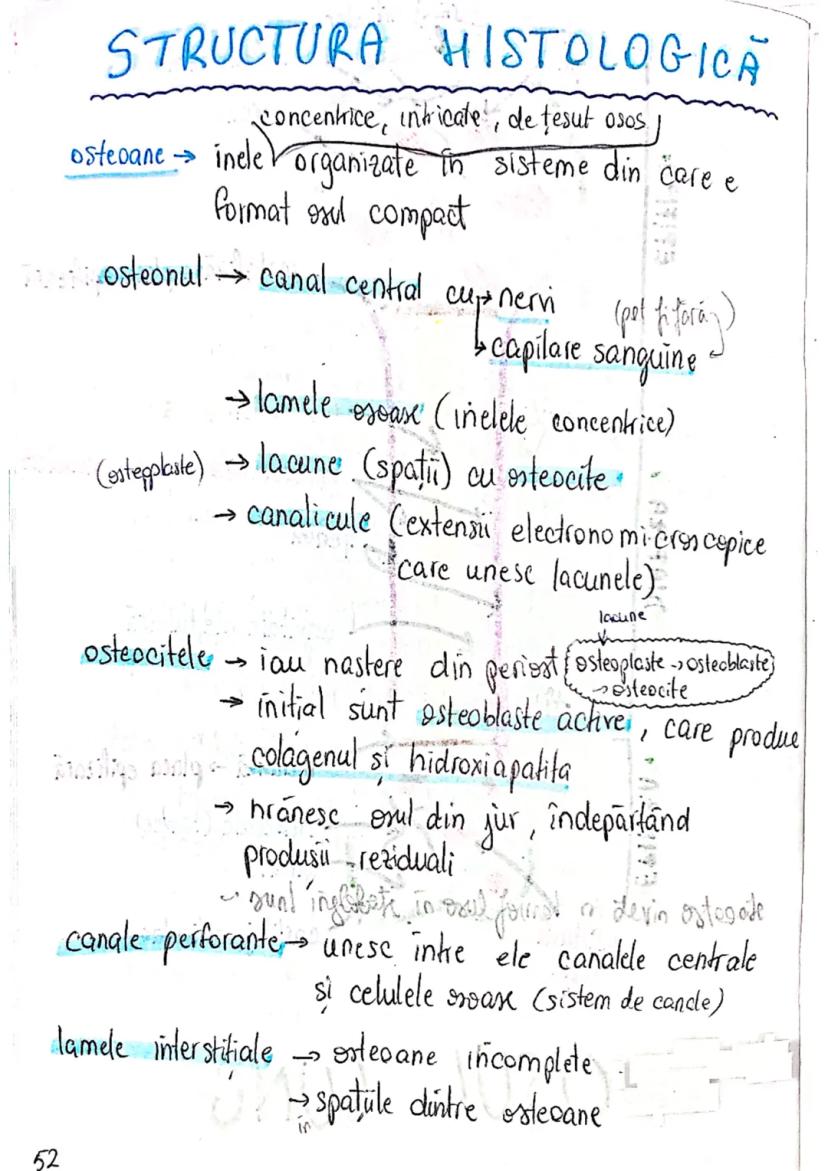 STRUCTURA HISTOLOGICĂ
concentrice, intricate, de țesut osos
osteoane → inele organizate în sisteme din care e
format osul compact
osteonul → canal central cu → nervi (pot fi fără)
→ capilare sanguine
→ lamele osoase (inelele concentrice)
(osteoplaste) → lacune (spații) cu osteocite
→ canalicule (extensii electronomicroscopice
care unesc lacunele)
lacune
osteocitele → iau nastere din periost (osteoplaste → osteoblaste
→ osteocite
→ inițial sunt osteoblaste active, care produc
colagenul și hidroxiapatita
→ hrănesc osul din jur, îndepărtând
produsii reziduali
sunt înglobate in osul format devin
canale perforante → unesc între ele canalele centrale
și celulele osoase (sistem de canale)
lamele interstițiale → osteoane incomplete
→ spațiile dintre osteoane
in
52